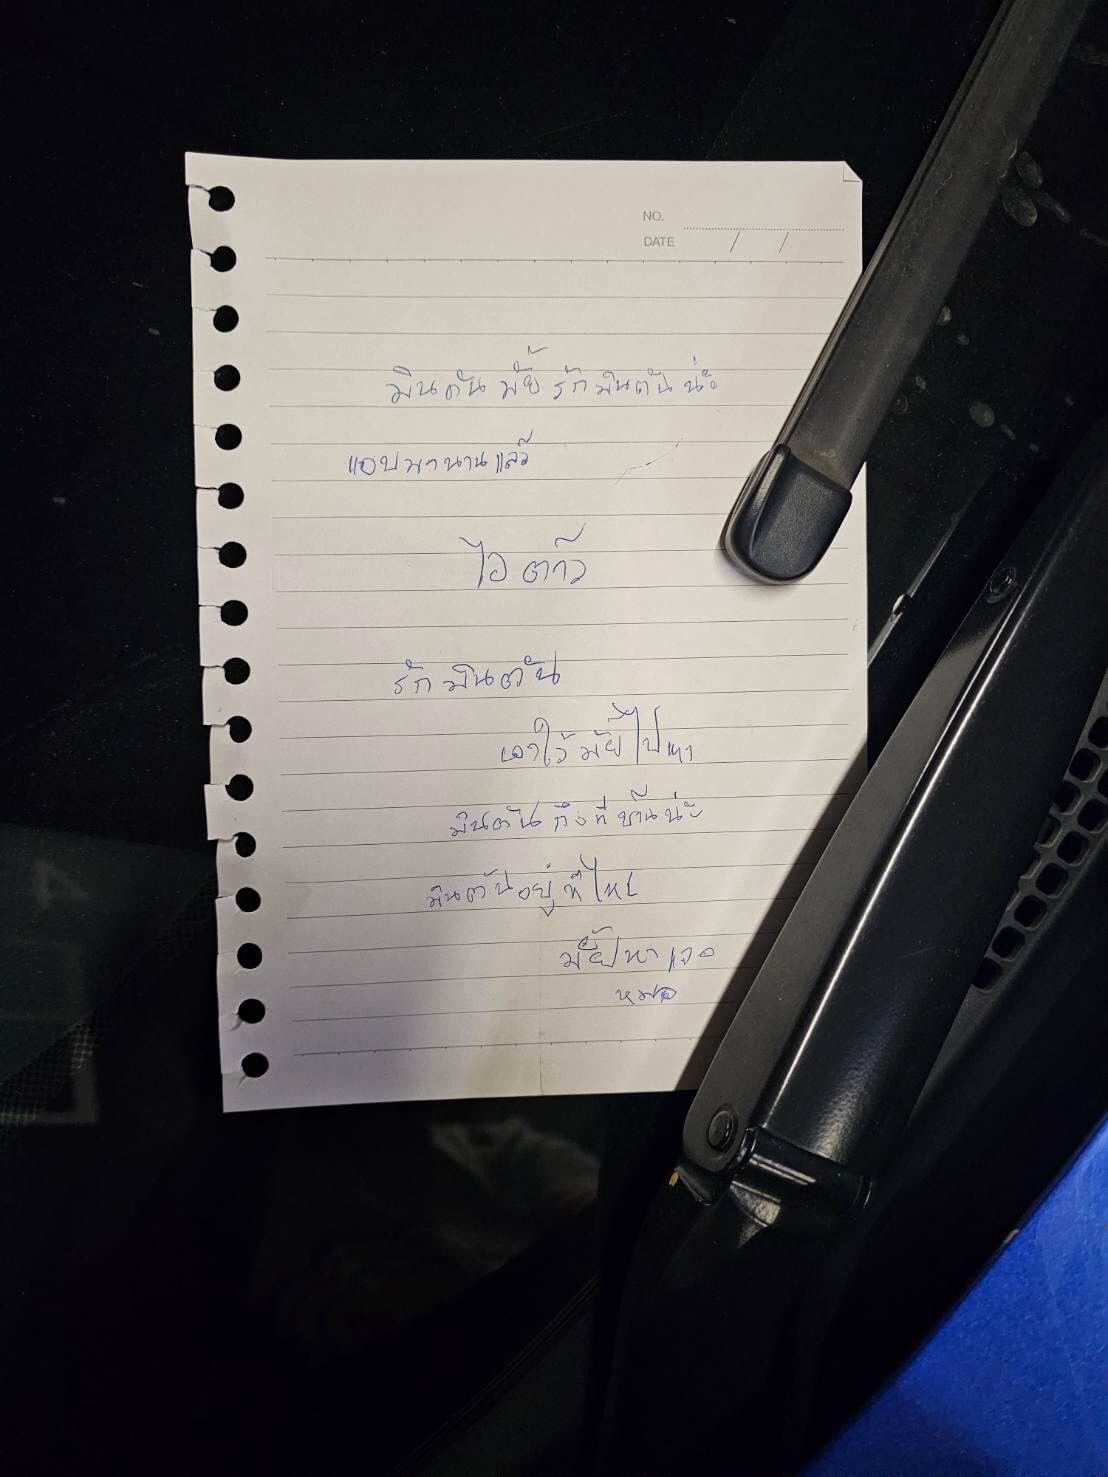 NO.
DATE / /
มินตัน มั้ย รัก มินตัน น่ะ
แอบมานานแล้ว
ไอ ต้าว
รัก มินตัน
เอาไว้ มั้ย ไปหา
มินตัน ถึงที่ บ้าน น่ะ
มินตัน อยู่ ที่ไหน
มั้ย หา เจอ
หมด